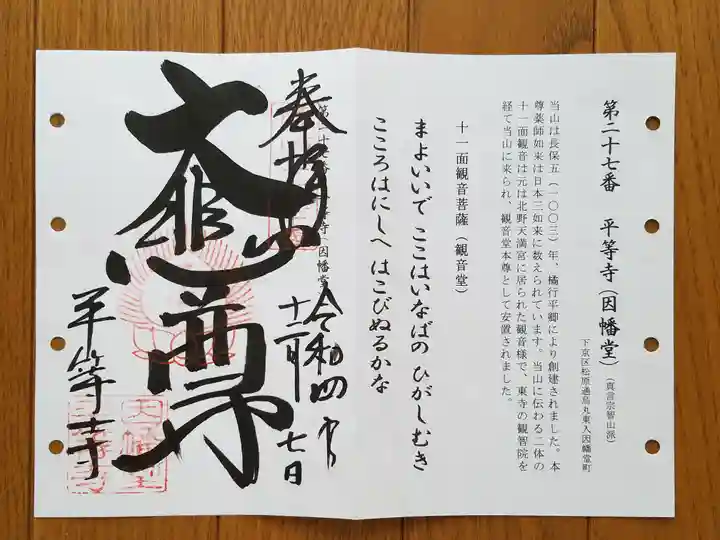 第二十七番 平等寺（因幡堂）
（真言宗智山派）
下京区松原通烏丸東入因幡堂町
当山は長保五（一〇〇三）年、橘行平卿により創建されました。本
尊薬師如来は日本三如来に数えられています。当山に伝わる二体の
十一面観音は元は北野天満宮に居られた観音様で、東寺の観智院を
経て当山に来られ、観音堂本尊として安置されました。
十一面観音菩薩（観音堂）
まよいいで ここはいなばの ひがしむき
こころはにしへ はこびぬるかな
奉拝
令和四年
十二月七日
大悲尊
平等寺